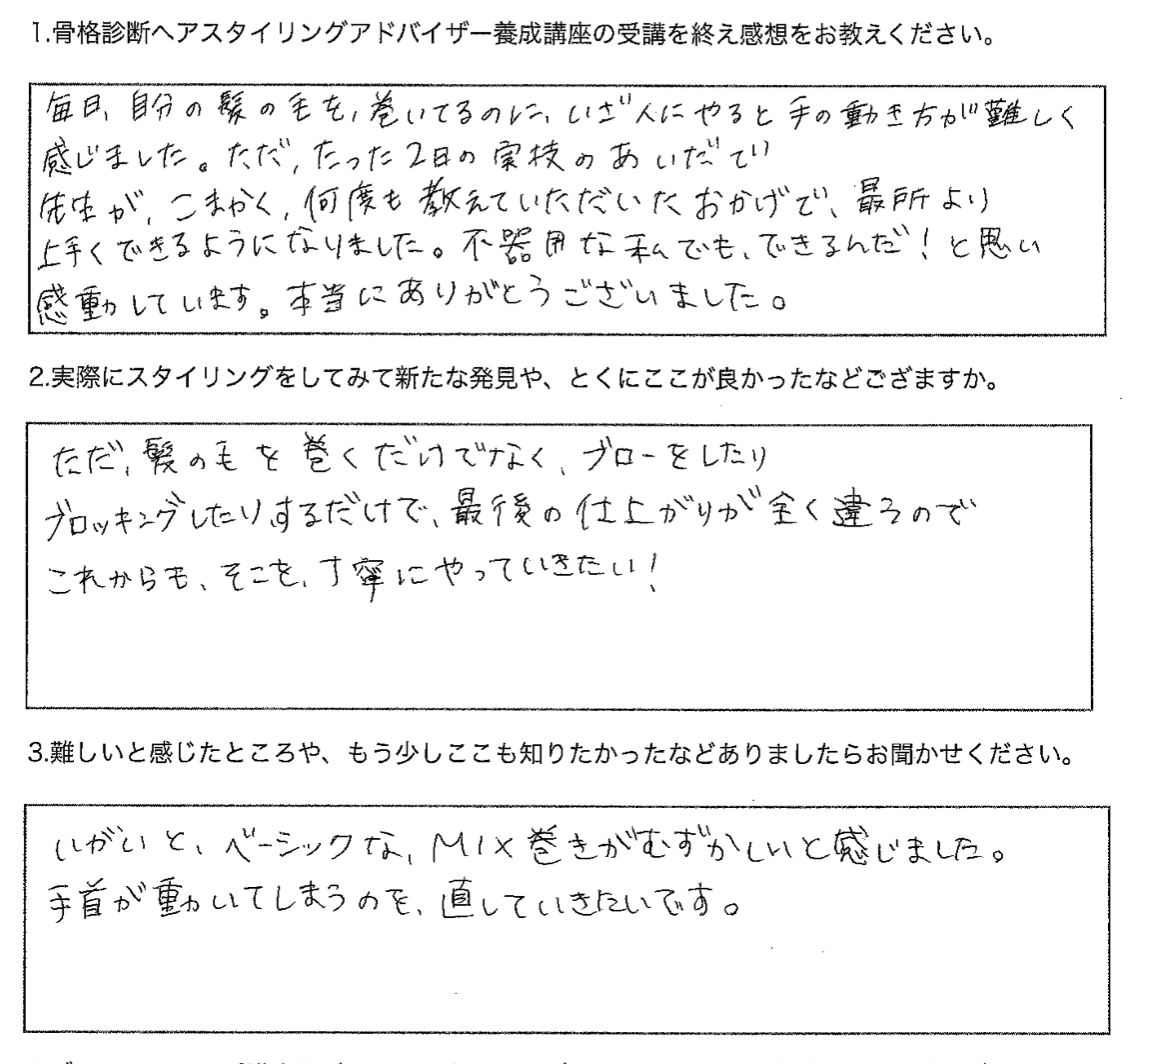 1.骨格診断ヘアスタイリングアドバイザー養成講座の受講を終え感想をお教えください。
毎日、自分の髪の毛を、巻いてるのに、いざ人にやると手の動き方が難しく
感じました。ただ、たった2日の実技のあいだで
先生が、こまかく、何度も教えていただいたおかげで、最所より
上手くできるようになりました。不器用な私でも、できるんだ！と思い
感動しています。本当にありがとうございました。
2.実際にスタイリングをしてみて新たな発見や、とくにここが良かったなどござますか。
ただ、髪の毛を巻くだけでなく、ブローをしたり
ブロッキングしたりするだけで、最後の仕上がりが全く違うので
これからも、そこを、丁寧にやっていきたい！
3.難しいと感じたところや、もう少しここも知りたかったなどありましたらお聞かせください。
いがいと、ベーシックな、MIX巻きがむずかしいと感じました。
手首が動いてしまうのを、直していきたいです。